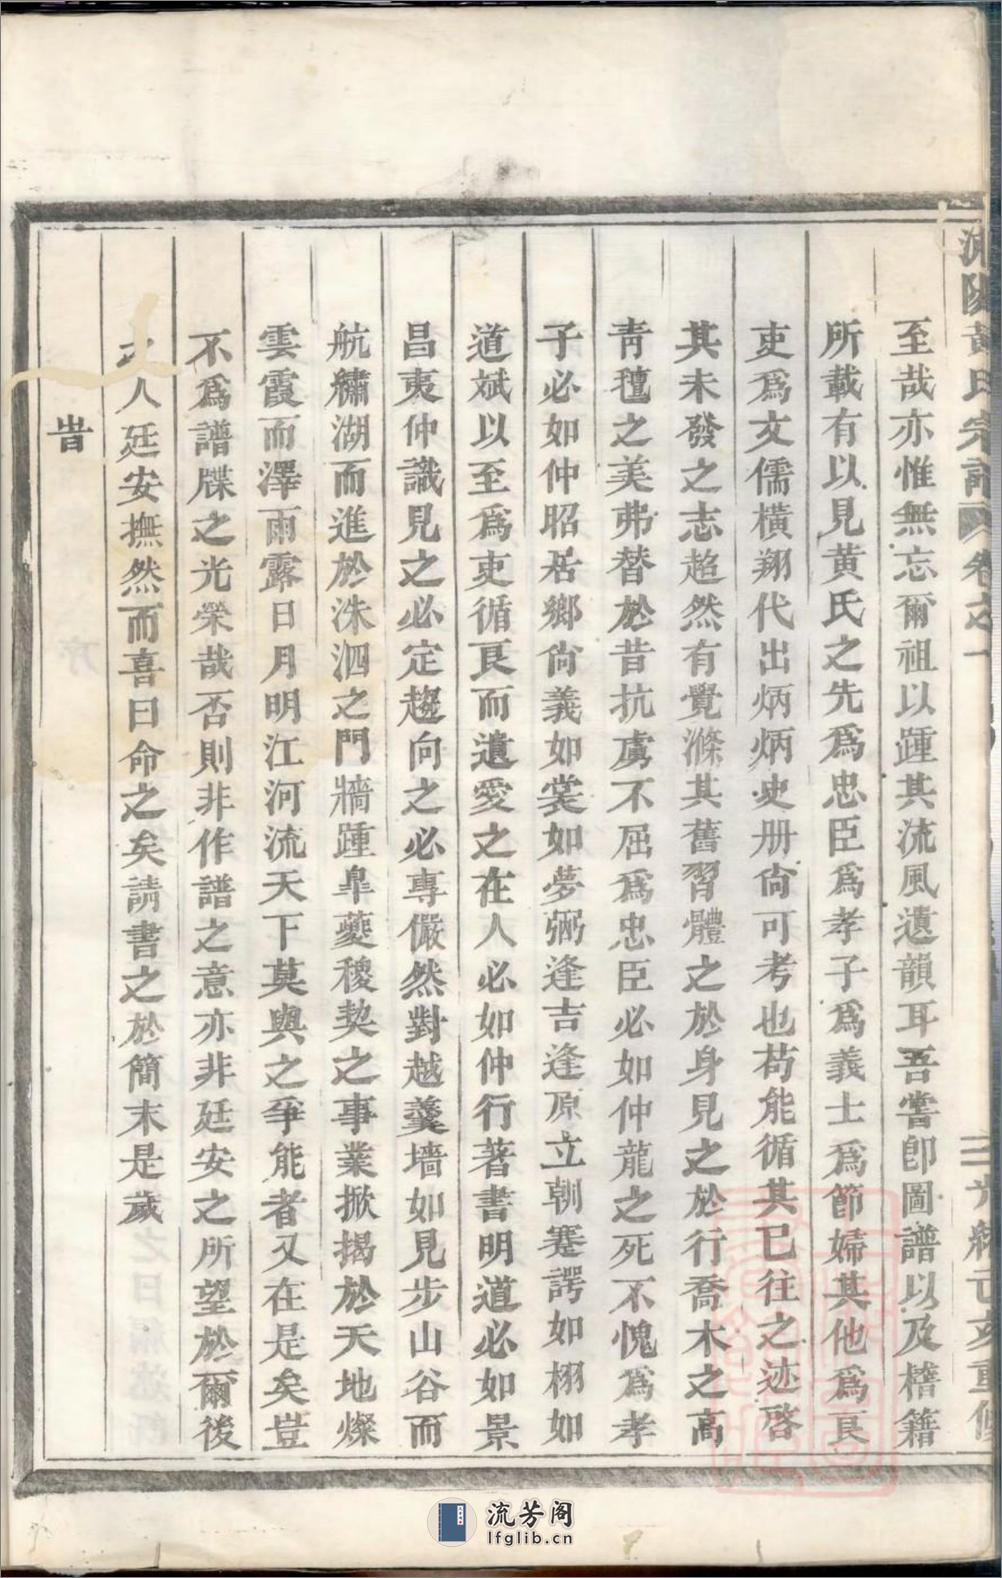 黃氏宗譜 卷之一 光緒己亥重修
至哉亦惟無忘爾祖以踵其流風遺韻耳吾嘗卽圖譜以及稽籍
所載有以見黃氏之先爲忠臣爲孝子爲義士爲節婦其他爲良
吏爲文儒橫翔代出炳炳史册尙可考也苟能循其已往之迹啓
其未發之志超然有覺滌其舊習體之於身見之於行喬木之高
靑氊之美弗替於昔抗虜不屈爲忠臣必如仲龍之死不愧爲孝
子必如仲昭居鄉尙義如裳如夢弼逢吉逢原立朝蹇諤如栩如
道斌以至爲吏循良而遺愛之在人必如仲行著書明道必如景
昌夷仲識見之必定趨向之必專儼然對越羹墻如見步山谷而
航繡湖而進於洙泗之門牆踵臯夔稷契之事業掀揭於天地燦
雲霞而澤雨露日月明江河流天下莫與之爭能者又在是矣豈
不爲譜牒之光榮哉否則非作譜之意亦非廷安之所望於爾後
之人廷安撫然而喜曰命之矣請書之於簡末是歲
旹
流芳阁
lfglib.cn